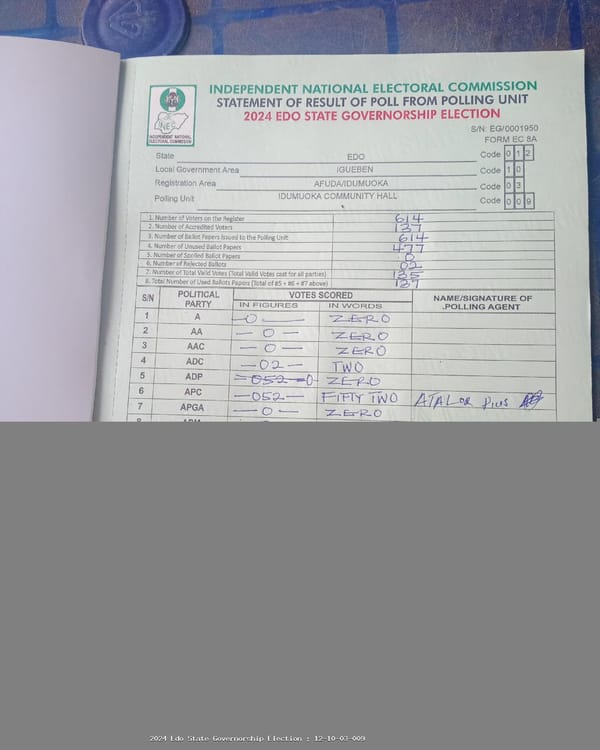 INDEPENDENT NATIONAL ELECTORAL COMMISSION
STATEMENT OF RESULT OF POLL FROM POLLING UNIT
2024 EDO STATE GOVERNORSHIP ELECTION
INEC
INDEPENDENT NATIONAL
ELECTORAL COMMISSION
S/N: EG/0001950
FORM EC 8A
State EDO Code 0 1 2
Local Government Area IGUEBEN Code 1 0
Registration Area AFUDA/IDUMUOKA Code 0 3
Polling Unit IDUMUOKA COMMUNITY HALL Code 0 0 9
1. Number of Voters on the Register 614
2. Number of Accredited Voters 137
3. Number of Ballot Papers Issued to the Polling Unit 614
4. Number of Unused Ballot Papers 477
5. Number of Spoiled Ballot Papers 0
6. Number of Rejected Ballots 02
7. Number of Total Valid Votes (Total Valid Votes cast for all parties) 135
8. Total Number of Used Ballots Papers (Total of #5 + #6 + #7 above) 137
S/N POLITICAL PARTY VOTES SCORED NAME/SIGNATURE OF .POLLING AGENT
IN FIGURES IN WORDS
1 A —0— ZERO
2 AA —0— ZERO
3 AAC —0— ZERO
4 ADC —02— TWO
5 ADP 052 —0 ZERO
6 APC —052— FIFTY TWO ATALOR PIUS
7 APGA —0— ZERO
2024 Edo State Governorship Election : 12-10-03-009